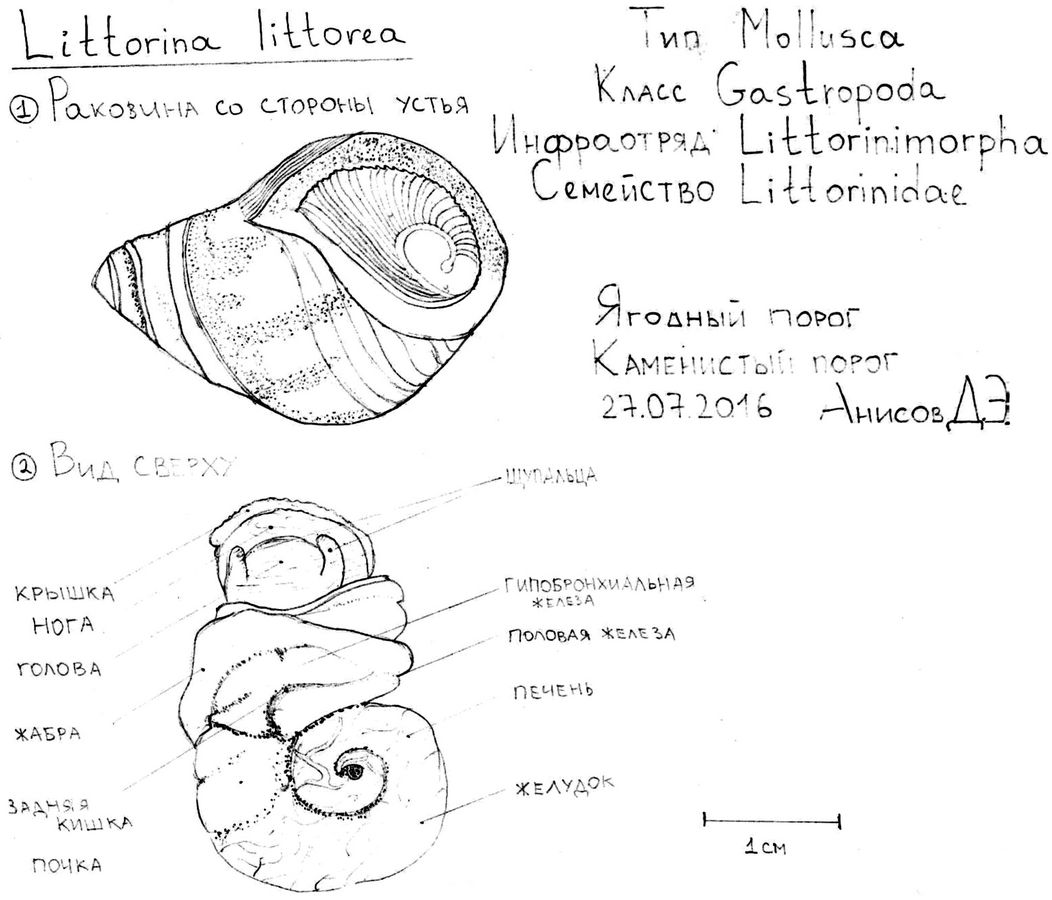 Littorina littorea
Тип Mollusca
Класс Gastropoda
Инфраотряд Littorinimorpha
Семейство Littorinidae
① Раковина со стороны устья
Ягодный порог
Каменистый порог
27.07.2016 Анисов Д.Э.
② Вид сверху
щупальца
крышка
нога
голова
жабра
задняя
кишка
почка
гипобронхиальная
железа
половая железа
печень
желудок
1 см